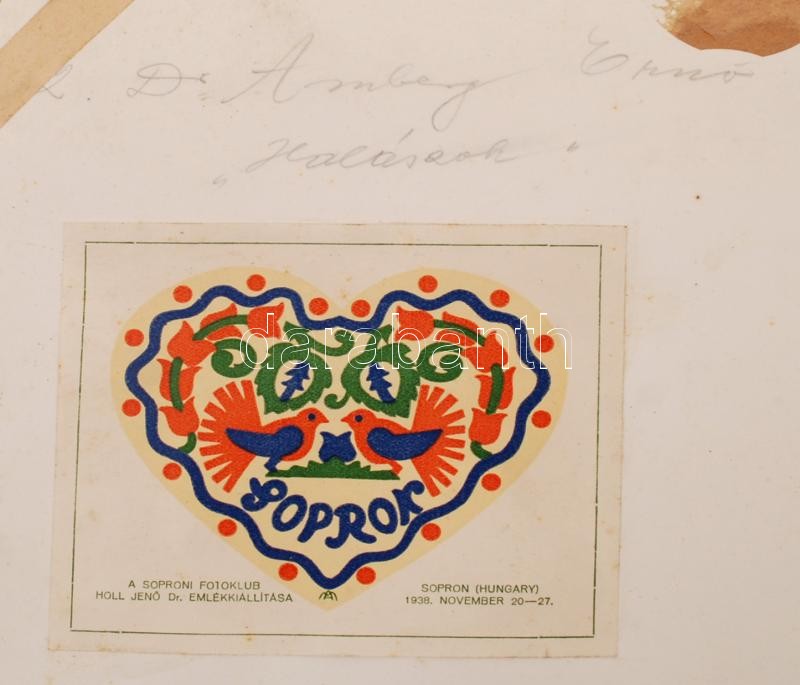 Dr Amberg Ernő
"Halászok"
darabanth
SOPRON
A SOPRONI FOTOKLUB
HOLL JENŐ Dr. EMLÉKKIÁLLÍTÁSA
SOPRON (HUNGARY)
1938. NOVEMBER 20—27.